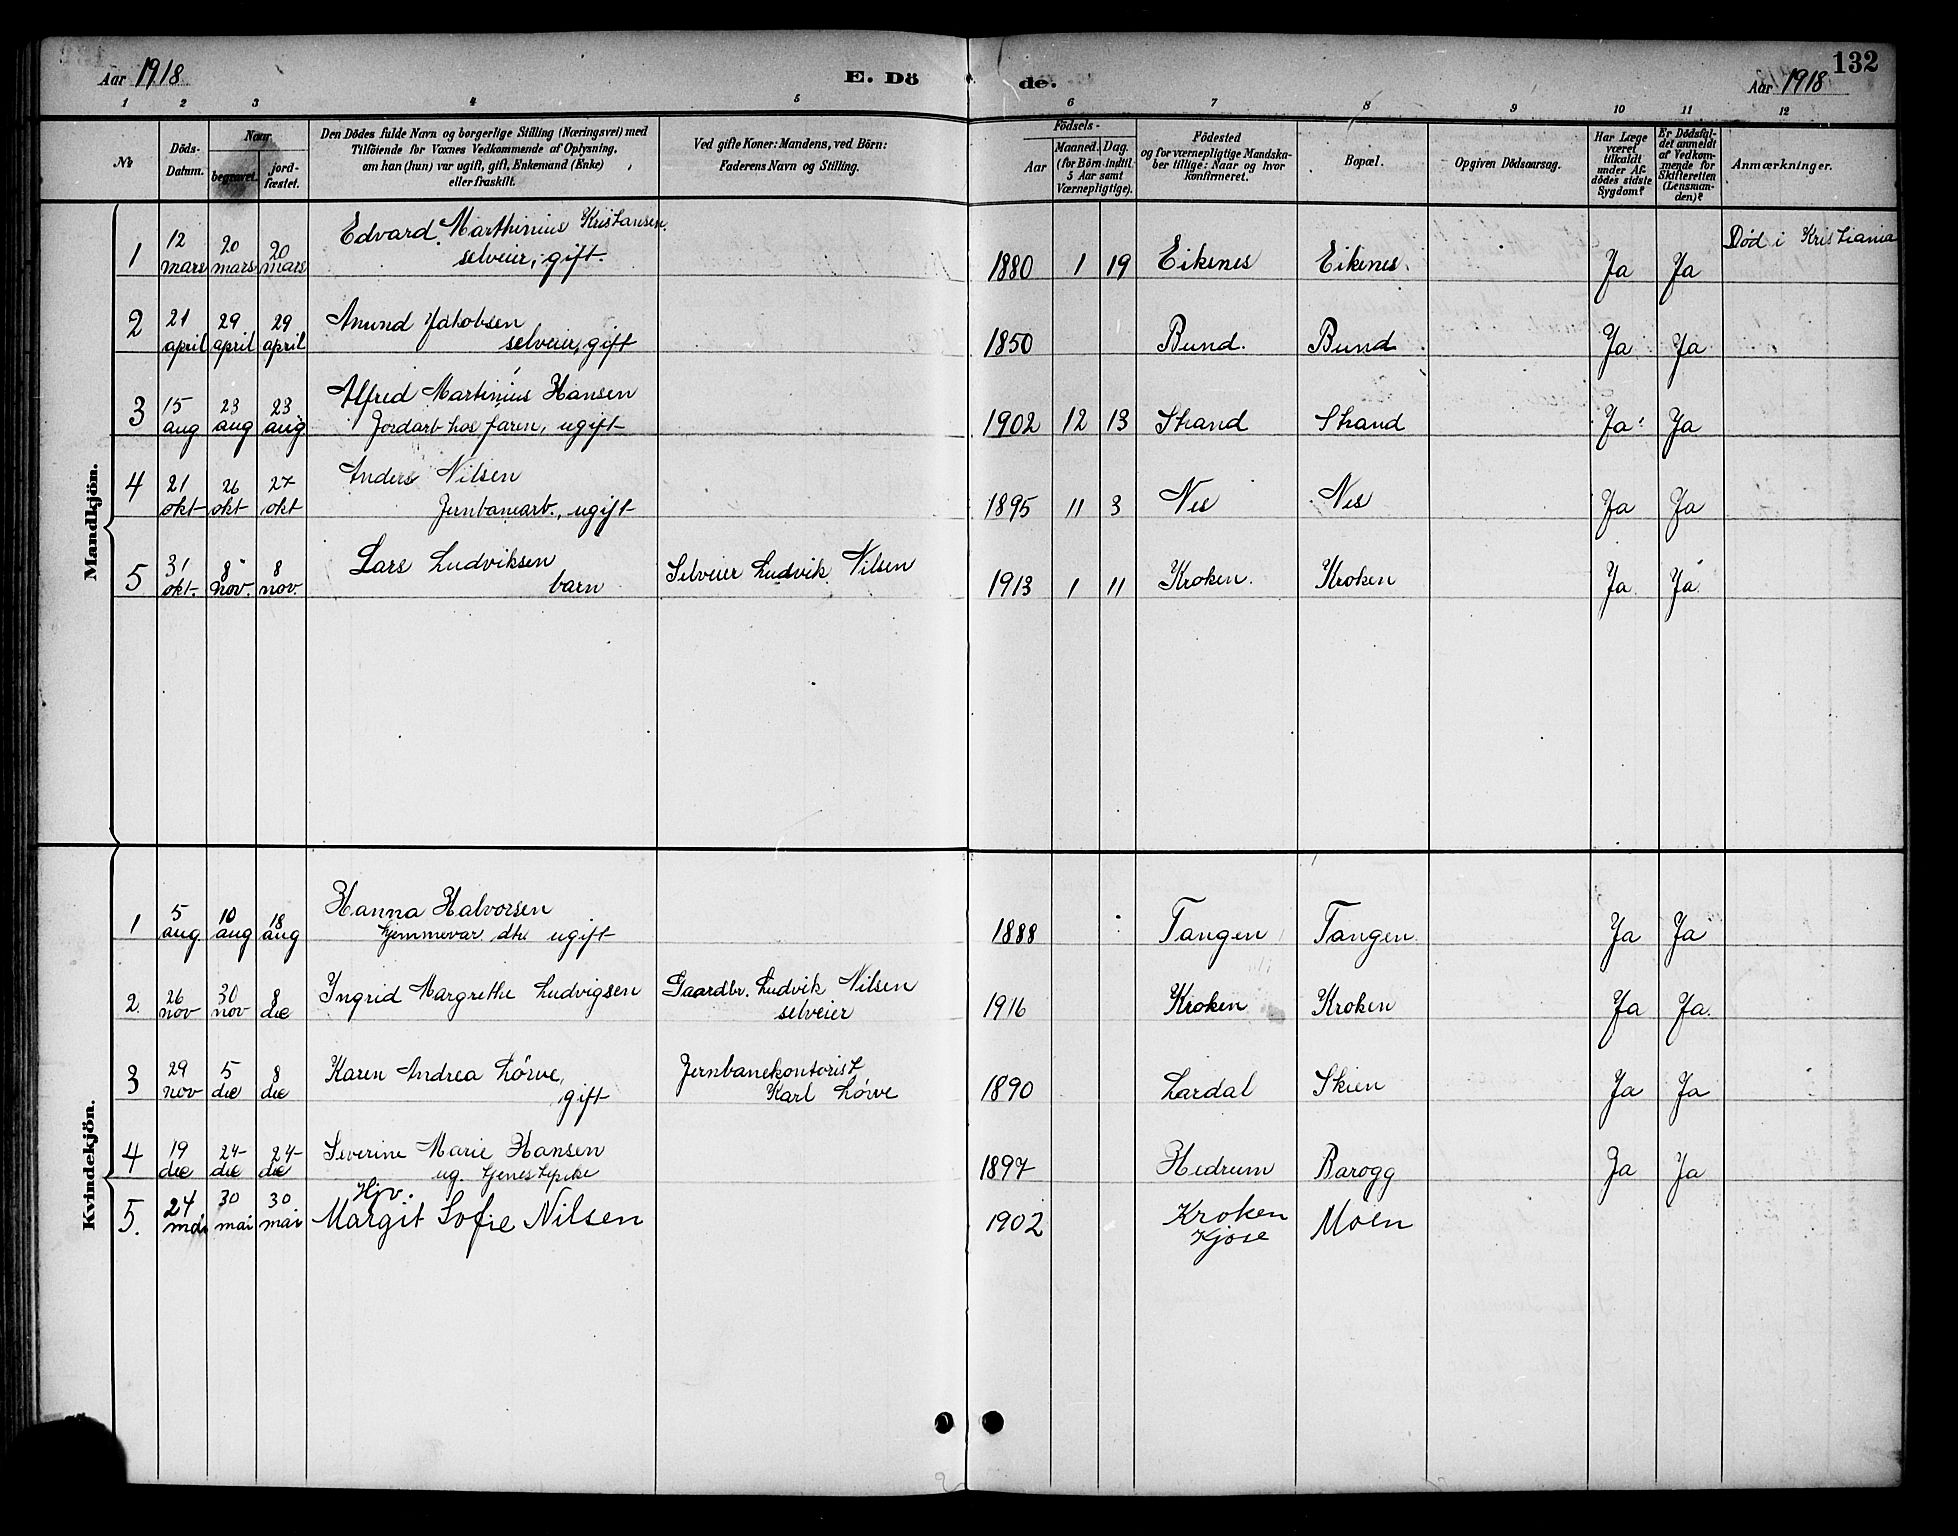 Aar 1918
E. Dö
de.
132
Aar 1918
1 2 3 4 5 6 7 8 9 10 11 12
No
Döds-Datum.
Naar
begravet.
jord-fæstet.
Den Dödes fulde Navn og borgerlige Stilling (Næringsvei) med
Tilföiende for Voxnes Vedkommende af Oplysning,
om han (hun) var ugift, gift, Enkemand (Enke)
eller fraskilt.
Ved gifte Koner: Mandens, ved Börn:
Faderens Navn og Stilling.
Födsels-
Aar
Maaned. Dag.
(for Börn indtil
5 Aar samt
Værnepligtige).
Födested
og for værnepligtige Mandska-
ber tillige: Naar og hvor
konfirmeret.
Bopæl.
Opgiven Dödsaarsag.
Har Læge
været
tilkaldt
under Af-
dödes sidste
Sygdom?
Er Dödsfal-
det anmeldt
af Vedkom-
mende for
Skifteretten
(Lensman-
den)?
Anmærkninger.
Mandkjön.
1 12 mars 20 mars 20 mars Edvard Marthinius Kristiansen 1880 1 19 Eikenes Eikenes Ja Ja Død i Kristiania
selveier, gift.
2 21 april 29 april 29 april Amund Jakobsen 1850 Bund. Bund Ja Ja
selveier, gift
3 15 aug 23 aug 23 aug Alfred Martinius Hansen 1902 12 13 Strand Strand Ja Ja
Jordarb hos faren, ugift
4 21 okt 26 okt 27 okt Anders Nilsen 1895 11 3 Nes Nes Ja Ja
Jernbanearb., ugift
5 31 okt. 8 nov. 8 nov. Lars Ludviksen Selveier Ludvik Nilsen 1913 1 11 Kroken. Kroken Ja Ja
barn
Kvindekjön.
1 5 aug 10 aug 18 aug Hanna Halvorsen 1888 Tangen Tangen Ja Ja
hjemmevar. dtr ugift
2. 26 nov 30 nov 8 dec Ingrid Margrethe Ludvigsen Gaardbr. Ludvik Nilsen 1916 Kroken Kroken Ja Ja.
selveier
3 29 nov 5 dec 8 dec Karen Andrea Lørve, Jernbanekontorist 1890 Lardal Skien Ja Ja
gift Karl Lørve
4 19 dec 24 dec 24 dec Severine Marie Hansen 1897 Hedrum Barogg Ja Ja
ug. tjenestepike
Hjv.
5. 24 mai 30 mai 30 mai Margit Sofie Nilsen 1902 Kroken Moen
Kjose